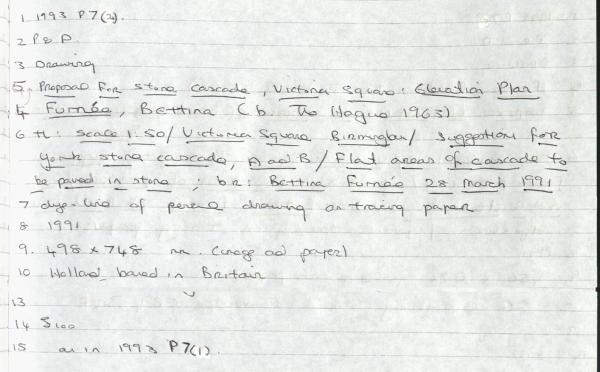 1 1993 P7(2).
2 P & D
3 Drawing
5. Proposal for stone cascade, Victoria Square: Elevation Plan
4 Furnée, Bettina (b. The Hague 1963)
6 tl: scale 1:50/ Victoria Square Birmingham/ Suggestion for
York stone cascade, A and B / Flat areas of cascade to
be paved in stone; br: Bettina Furnée 28 March 1991
7 dye-line of pencil drawing on tracing paper
8 1991
9. 498 x 748 mm. (image and paper)
10 Holland based in Britain
13
14 S100
15 as in 1993 P7(1).